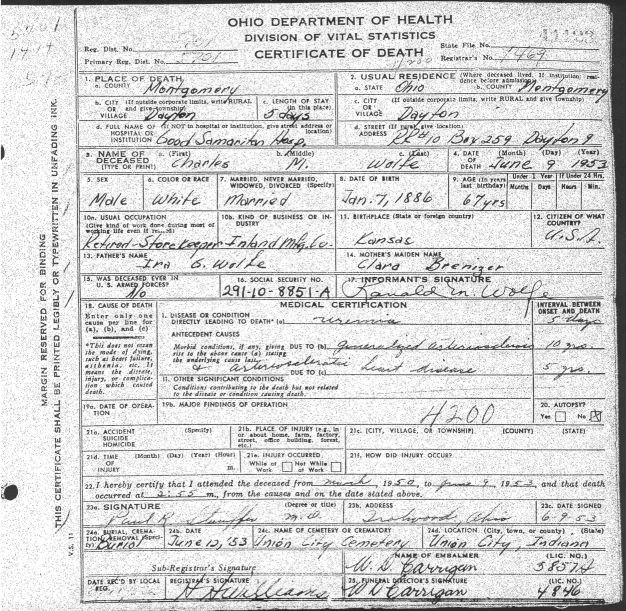 OHIO DEPARTMENT OF HEALTH
DIVISION OF VITAL STATISTICS
CERTIFICATE OF DEATH
Reg. Dist. No.
Primary Reg. Dist. No. 5701
State File No.
Registrar's No. 1469
1. PLACE OF DEATH
a. COUNTY Montgomery
2. USUAL RESIDENCE (Where deceased lived. If institution: residence before admission)
a. STATE Ohio b. COUNTY Montgomery
b. CITY (If outside corporate limits, write RURAL
OR and give township)
VILLAGE Dayton
c. LENGTH OF STAY
(in this place)
5 days
c. CITY (If outside corporate limits, write RURAL and give township)
OR
VILLAGE Dayton
d. FULL NAME OF (If NOT in hospital or institution, give street address or
HOSPITAL OR location)
INSTITUTION Good Samaritan Hosp.
d. STREET (If rural, give location)
ADDRESS Box 259 Dayton 9
3. NAME OF
DECEASED
(TYPE OR PRINT)
a. (First) b. (Middle) c. (Last)
Charles M. Wolfe
4. DATE (Month) (Day) (Year)
OF
DEATH June 9 1953
5. SEX
Male
6. COLOR OR RACE
White
7. MARRIED, NEVER MARRIED,
WIDOWED, DIVORCED (Specify)
Married
8. DATE OF BIRTH
Jan. 7, 1886
9. AGE (In years
last birthday)
67 yrs
Under 1 Year If Under 24 Hrs.
Months Days Hours Min.
10a. USUAL OCCUPATION
(Give kind of work done during most of
working life even if retired)
Retired-Storekeeper
10b. KIND OF BUSINESS OR INDUSTRY
Inland Mfg. Co.
11. BIRTHPLACE (State or foreign country)
Kansas
12. CITIZEN OF WHAT
COUNTRY?
U.S.A.
13. FATHER'S NAME
Ira G. Wolfe
14. MOTHER'S MAIDEN NAME
Clara Brenizer
15. WAS DECEASED EVER IN
U. S. ARMED FORCES?
No
16. SOCIAL SECURITY NO.
291-10-8851-A
17. INFORMANT'S SIGNATURE
Ronald M. Wolfe
18. CAUSE OF DEATH
Enter only one
cause per line for
(a), (b), and (c)
*This does not mean
the mode of dying,
such as heart failure,
asthenia, etc. It
means the disease,
injury, or complication
which caused
death.
MEDICAL CERTIFICATION
INTERVAL BETWEEN
ONSET AND DEATH
I. DISEASE OR CONDITION
DIRECTLY LEADING TO DEATH* (a) uremia 5 days
ANTECEDENT CAUSES
Morbid conditions, if any, giving DUE TO (b) generalized arteriosclerosis 10 yrs.
rise to the above cause (a) stating
the underlying cause last.
& arteriosclerotic
DUE TO (c) heart disease 5 yrs.
II. OTHER SIGNIFICANT CONDITIONS
Conditions contributing to the death but not related
to the disease or condition causing death.
19a. DATE OF OPERATION
19b. MAJOR FINDINGS OF OPERATION
4200
20. AUTOPSY?
Yes No X
21a. ACCIDENT (Specify)
SUICIDE
HOMICIDE
21b. PLACE OF INJURY (e.g., in
or about home, farm, factory,
street, office building, forest,
etc.)
21c. (CITY, VILLAGE, OR TOWNSHIP) (COUNTY) (STATE)
21d. TIME (Month) (Day) (Year) (Hour)
OF
INJURY m.
21e. INJURY OCCURRED
While at Work Not While at Work
21f. HOW DID INJURY OCCUR?
22. I hereby certify that I attended the deceased from March, 1950, to June 9, 1953, and that death
occurred at 2:55 m., from the causes and on the date stated above.
23a. SIGNATURE (Degree or title)
M.D.
23b. ADDRESS
Trotwood Ohio
23c. DATE SIGNED
6-9-53
24a. BURIAL, CREMATION, REMOVAL (Specify)
Burial
24b. DATE
June 12, '53
24c. NAME OF CEMETERY OR CREMATORY
Union City Cemetery
24d. LOCATION (City, town, or county) (State)
Union City, Indiana
Sub-Registrar's Signature
NAME OF EMBALMER (LIC. NO.)
W. D. Carrigan 5857A
DATE REC'D BY LOCAL
REG.
REGISTRAR'S SIGNATURE
H H Williams
25. FUNERAL DIRECTOR'S SIGNATURE (LIC. NO.)
W D Carrigan 4846
MARGIN RESERVED FOR BINDING
THIS CERTIFICATE SHALL BE PRINTED LEGIBLY OR TYPEWRITTEN IN UNFADING INK.
V.S. 11